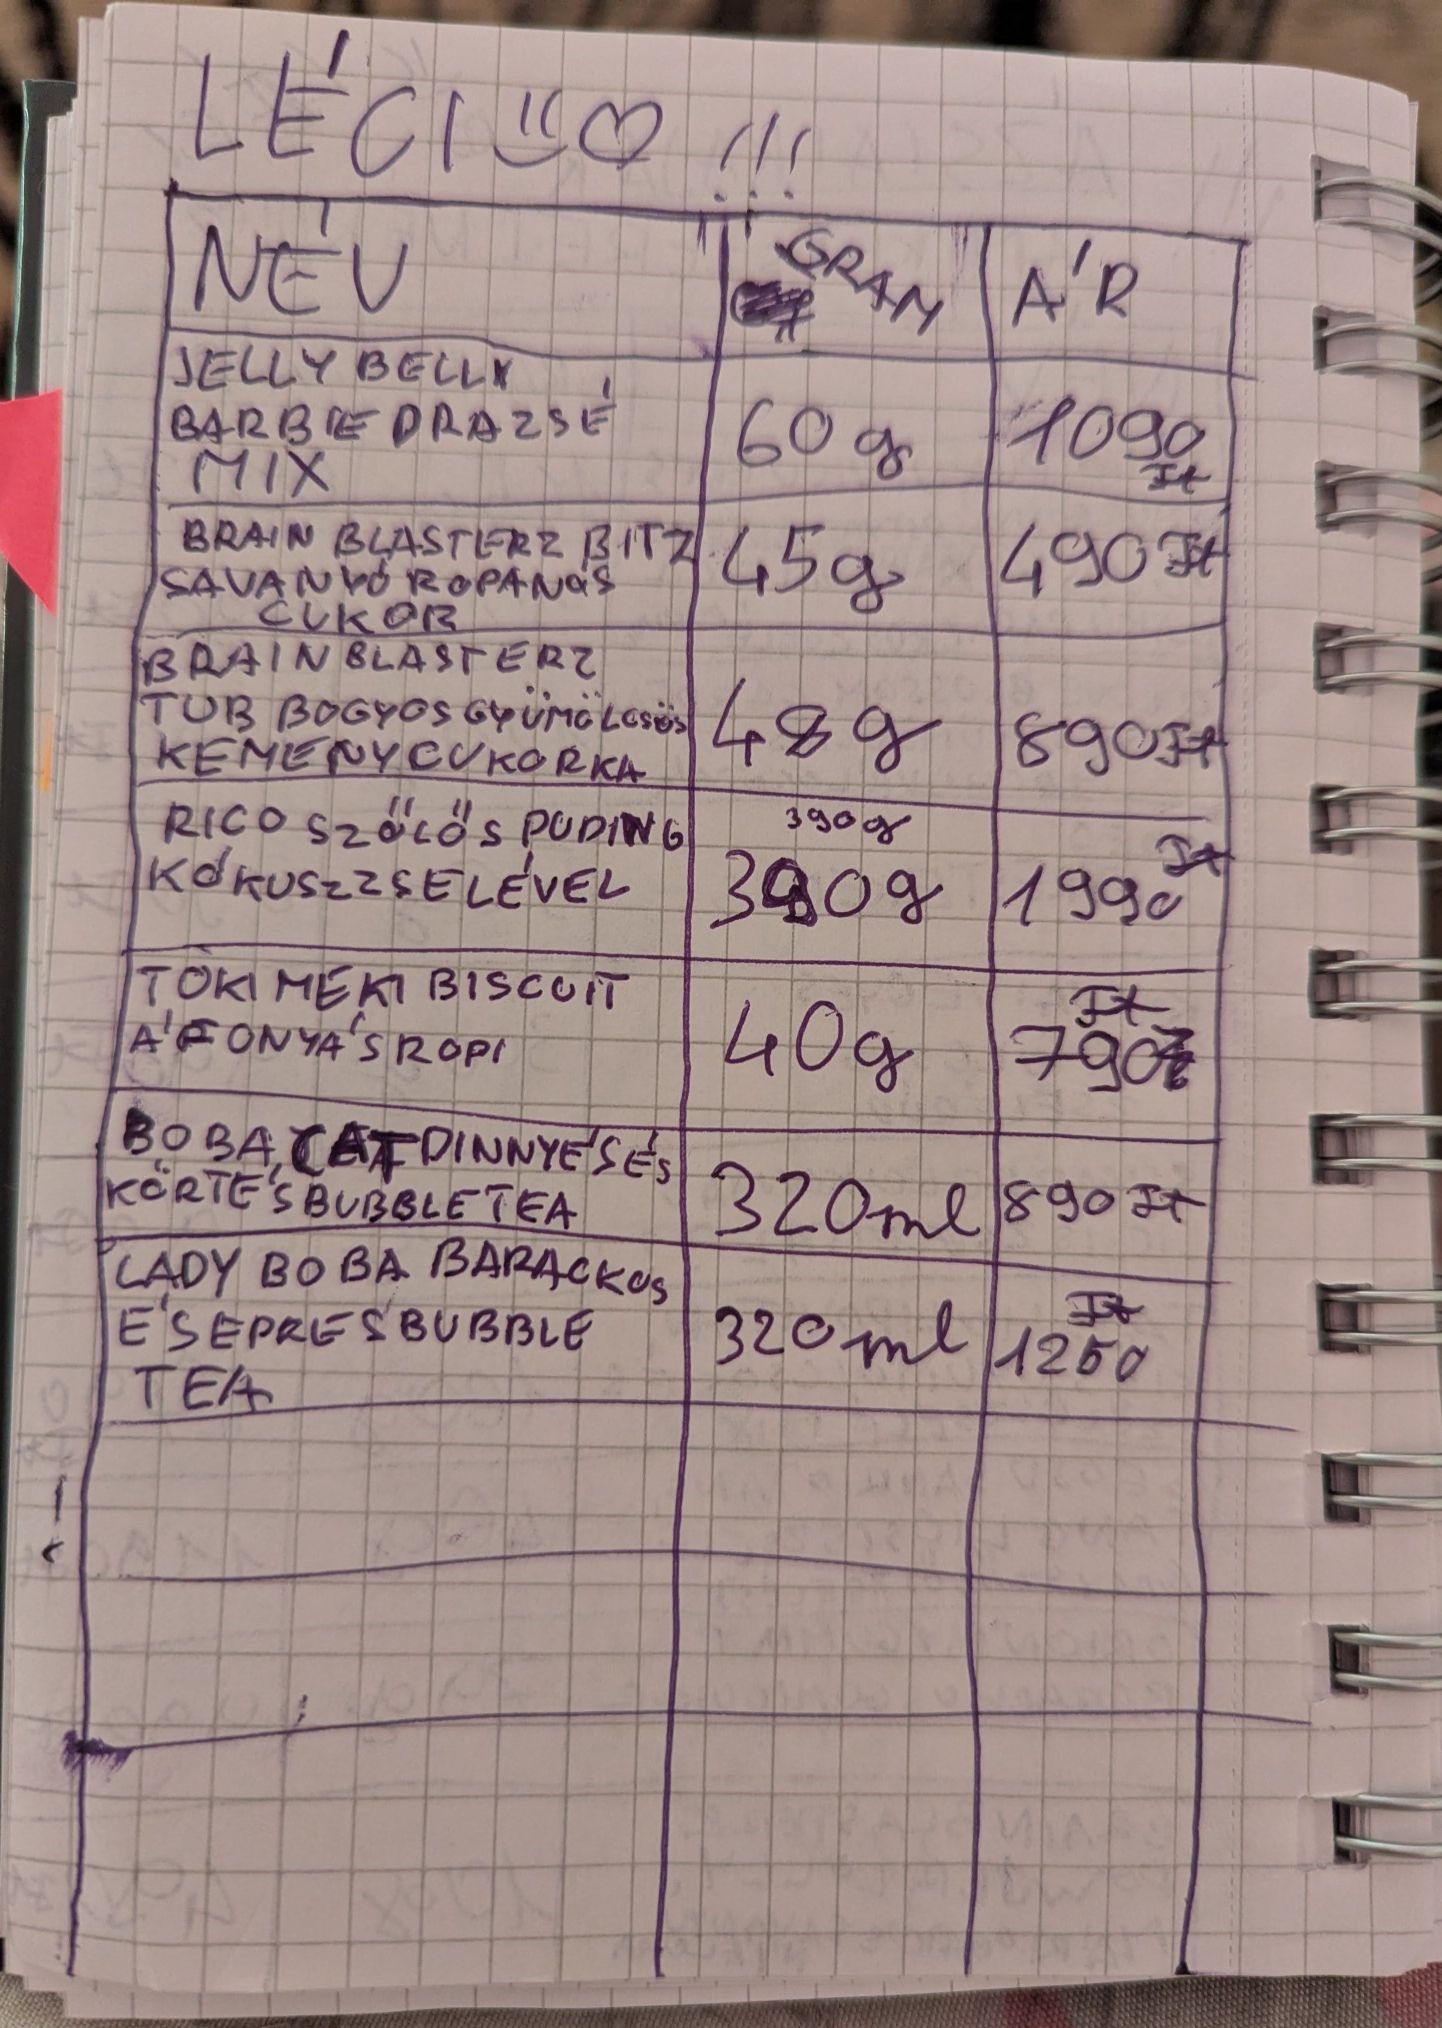 LÉCI !!!
NÉV GRAM ÁR
JELLY BELLY
BARBIE DRAZSÉ
MIX
60 g 1090
Ft
BRAIN BLASTERZ BITZ
SAVANYÓ ROPANÓS
CUKOR
45g 490 Ft
BRAIN BLASTERZ
TUB BOGYOS GYÜMÖLCSÖS
KEMENYCUKORKA
48 g 890 Ft
RICO SZŐLŐS PUDING
KÓKUSZZSELÉVEL
390g
390g 1990 Ft
TOKIMEKI BISCUIT
ÁFONYÁS ROPI
40g Ft
790
BOBA CAT DINNYÉS ÉS
KÖRTÉS BUBBLE TEA
320ml 890 Ft
LADY BOBA BARACKOS
ÉS EPRES BUBBLE
TEA
320 ml Ft
1250